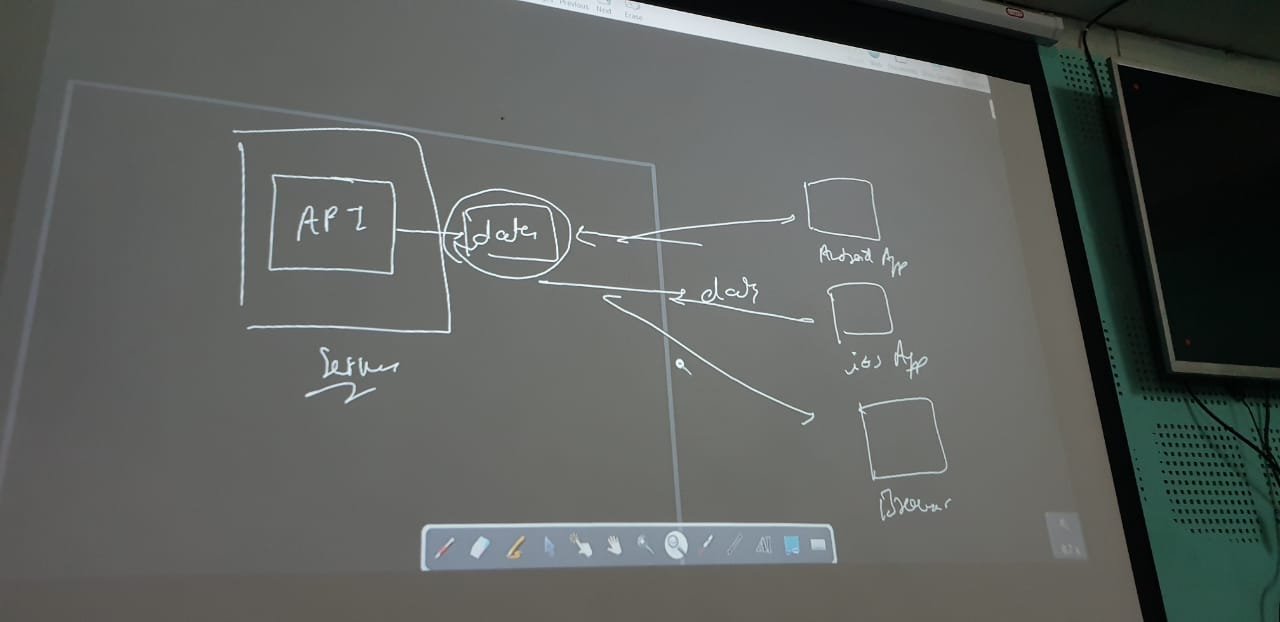 Previous Next
Erase
API
data
data
Server
Android App
ios App
Browser